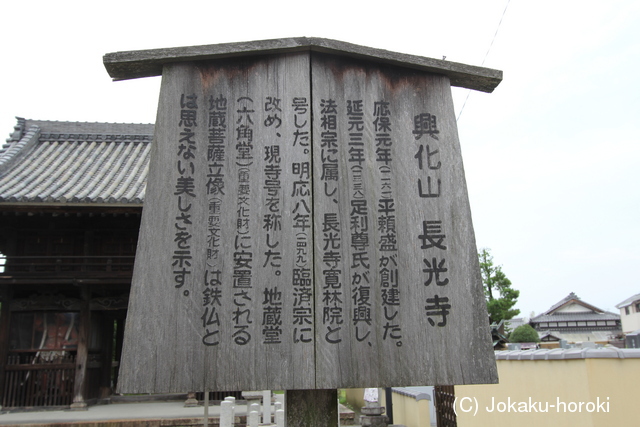 興化山 長光寺
応保元年(一一六一)平頼盛が創建した。
延元三年(一三三八)足利尊氏が復興し、
法相宗に属し、長光寺寛林院と
号した。明応八年(一四九九)臨済宗に
改め、現寺号を称した。地蔵堂
(六角堂)(重要文化財)に安置される
地蔵菩薩立像(重要文化財)は鉄仏と
は思えない美しさを示す。
(C) Jokaku-horoki